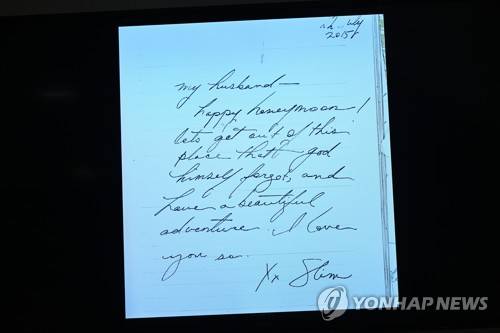 july
2015
my husband –
happy honeymoon!
lets get out of this
place that god
himself forgot, and
have a beautiful
adventure. I love
you so.
Xx Slim
YONHAP NEWS